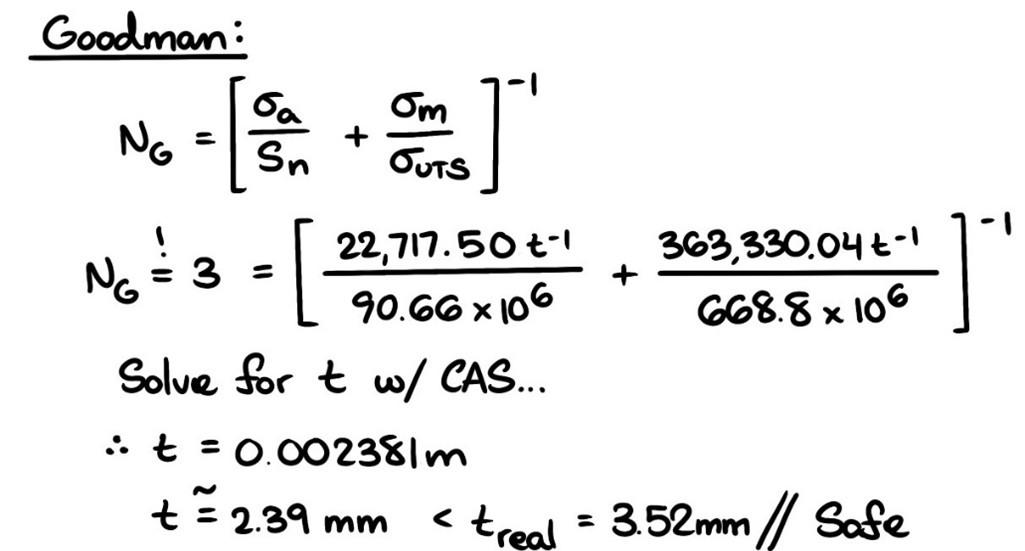 Goodman:
N_G = [σ_a / S_n + σ_m / σ_UTS]^-1
N_G =! 3 = [22,717.50 t^-1 / 90.66 × 10^6 + 363,330.04 t^-1 / 668.8 × 10^6]^-1
Solve for t w/ CAS...
∴ t = 0.002381m
t ≅ 2.39 mm < t_real = 3.52mm // Safe